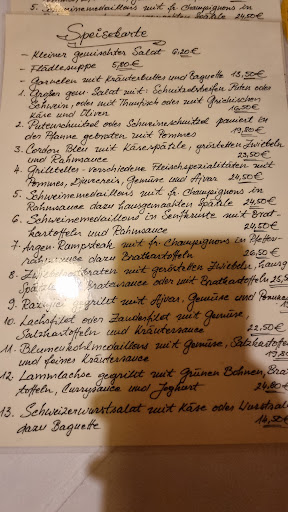 5. Schweinemedaillons mit fr. Champignons in
24,50€
Speisekarte
- Kleiner gemischter Salat 6,20€
- Flädlesuppe 5,80€
- Garnelen mit Kräuterbutter und Baguette 13,50€
1. Großer gem. Salat mit: Schnitzelstreifen Puten oder
Schwein, oder mit Thunfisch oder mit Griechischen
Käse und Oliven 16,50€
2. Putenschnitzel oder Schweineschnitzel paniert in
der Pfanne gebraten mit Pommes 19,80€
3. Cordon Bleu mit Käsespätzle, gerösteten Zwiebeln
und Rahmsauce 23,50€
4. Grillteller - verschiedene Fleischspezialitäten mit
Pommes, Djuvecreis, Gemüse und Ajvar 24,50€
5. Schweinemedaillons mit fr. Champignons in
Rahmsauce dazu hausgemachten Spätzle 24,50€
6. Schweinemedaillons in Senfkruste mit Brat-
kartoffeln und Rahmsauce 24,50€
7. Argen. Rumpsteak mit fr. Champignons in Pfeffer-
rahmsauce dazu Bratkartoffeln 26,50€
8. Zwiebelrostbraten mit gerösteten Zwiebeln, hausg.
Spätzle Bratensauce oder mit Bratkartoffeln 25,5
9. gegrillt mit Ajvar, Gemüse und Pommes
10. Lachsfilet oder Zanderfilet mit Gemüse,
Salzkartoffeln und Kräutersauce 22,50€
11. Blumenkohlmedaillons mit Gemüse, Salzkartoffel
und feiner Kräutersauce
12. Lammlachse gegrillt mit Grünen Bohnen, Brat
toffeln, Currysauce und Joghurt 24,80€
13. Schweizerwurstsalat mit Käse oder Wurstsala
dazu Baguette 14,50€